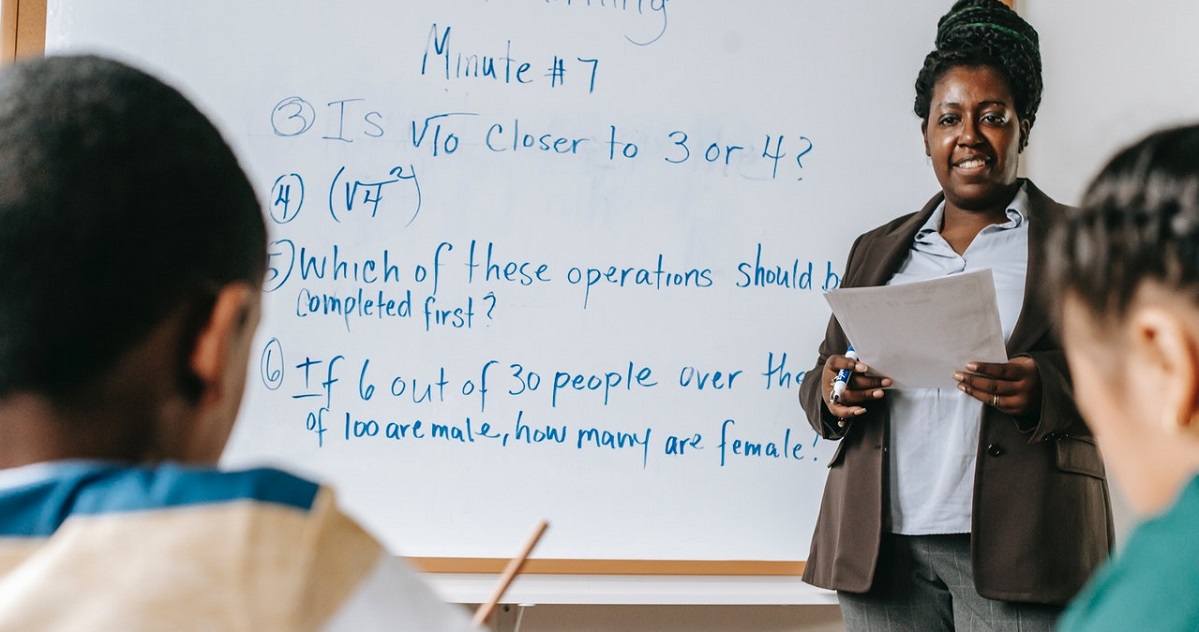 Minute #7
③ Is √10 closer to 3 or 4?
④ (√4²)
5) Which of these operations should b
completed first?
⑥ If 6 out of 30 people over the
of 100 are male, how many are female?